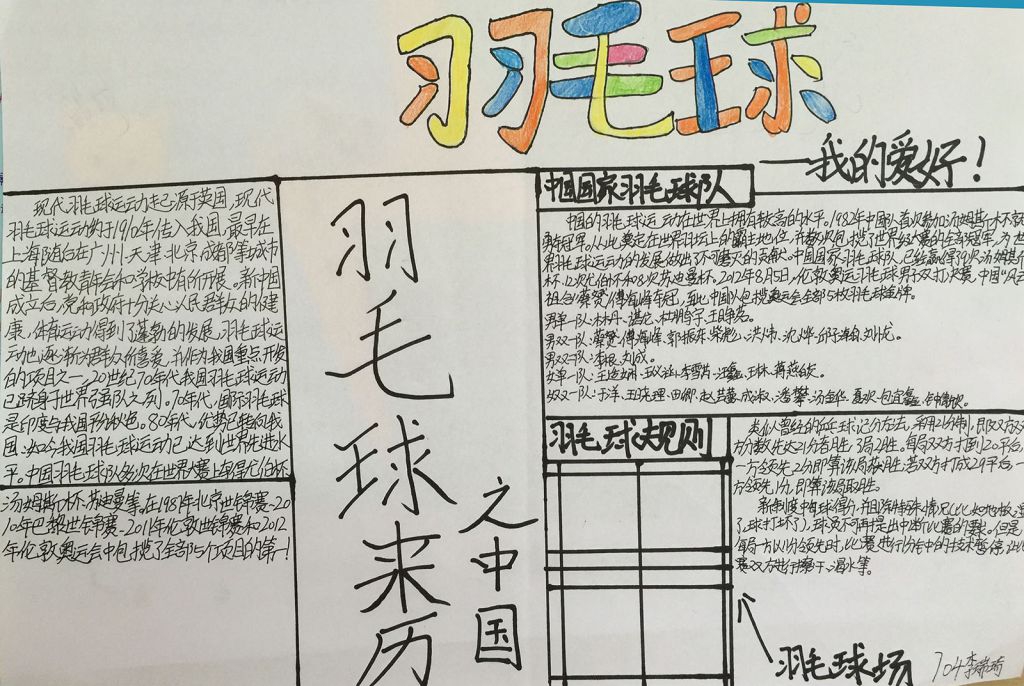 羽毛球
——我的爱好!
现代羽毛球运动起源于英国,现代
羽毛球运动约于1910年传入我国,最早在
上海随后在广州、天津、北京、成都等城市
的基督教青年会和学校中有所开展。新中国
成立后,党和政府十分关心人民群众的健
康,体育运动得到了蓬勃的发展,羽毛球运
动也逐渐为群众所喜爱,并作为我国重点开发
的项目之一,20世纪70年代我国羽毛球运动
已跻身于世界强队之列。70年代,国际羽毛球
是印度与我国平分秋色。80年代,优势已转向我
国,如今我国羽毛球运动已达到世界先进水
平。中国羽毛球队多次在世界大赛上取得尤伯杯
汤姆斯杯、苏迪曼等,在1987年北京世锦赛、20
10年巴黎世锦赛、2011年伦敦世锦赛和2012
年伦敦奥运会中包揽了全部5个项目的第一!
羽毛球来历
之中国
中国国家羽毛球队
中国的羽毛球运动在世界上拥有较高的水平。1982年中国队首次参加汤姆斯杯
夺得冠军,从此奠定在世界羽坛上的霸主地位,并多次包揽了世界级大赛的全部冠军,为世
界羽毛球运动的发展做出了不可磨灭的贡献。中国国家羽毛球队已经赢得9次汤姆斯
杯、12次尤伯杯和8次苏迪曼杯。2012年8月5日,伦敦奥运羽毛球男子双打决赛,中国“风云
组合”蔡赟/傅海峰夺冠,至此中国队包揽奥运会全部5枚羽毛球金牌。
男单一队:林丹、谌龙、杜鹏宇、王睁茗。
男双一队:蔡赟、傅海峰、郭振东、柴飚、洪炜、沈烨、邱子瀚、刘小龙。
男双二队:李根、刘成。
女单一队:王适娴、王仪涵、李雪芮、汪鑫、王琳、蒋燕皎。
女双一队:于洋、王晓理、田卿、赵芸蕾、成淑、潘攀、汤金华、夏欢、包宜鑫、钟倩欣。
羽毛球规则
类似曾经的乒乓球记分方法,采用21分制,即双方
分数先达21分者胜,3局2胜。每局双方打到20平后,
一方领先2分即算该局获胜;若双方打成29平后,一
方领先1分,即算该局取胜。
新制度中每球得分,并且除特殊情况(比如地板湿
了,球打坏了),球员不可再提出中断比赛的要求。但是,
每局一方以11分领先时,比赛进行1分钟的技术暂停,让比
赛双方进行擦汗、喝水等。
羽毛球场
704李